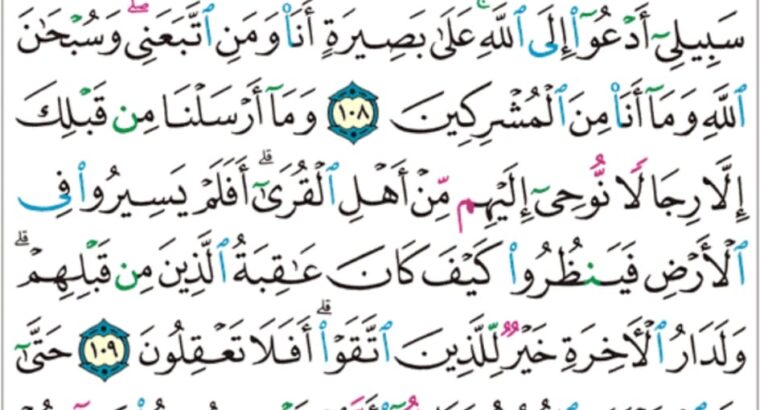 سَبِيلِىٓ أَدْعُوٓا۟ إِلَى ٱللَّهِ ۚ عَلَىٰ بَصِيرَةٍ أَنَا۠ وَمَنِ ٱتَّبَعَنِى ۖ وَسُبْحَـٰنَ
ٱللَّهِ وَمَآ أَنَا۠ مِنَ ٱلْمُشْرِكِينَ ١٠٨ وَمَآ أَرْسَلْنَا مِن قَبْلِكَ
إِلَّا رِجَالًا نُّوحِىٓ إِلَيْهِم مِّنْ أَهْلِ ٱلْقُرَىٰٓ ۗ أَفَلَمْ يَسِيرُوا۟ فِى
ٱلْأَرْضِ فَيَنظُرُوا۟ كَيْفَ كَانَ عَـٰقِبَةُ ٱلَّذِينَ مِن قَبْلِهِمْ ۗ
وَلَدَارُ ٱلْـَٔاخِرَةِ خَيْرٌ لِّلَّذِينَ ٱتَّقَوْا۟ ۗ أَفَلَا تَعْقِلُونَ ١٠٩ حَتَّىٰٓ